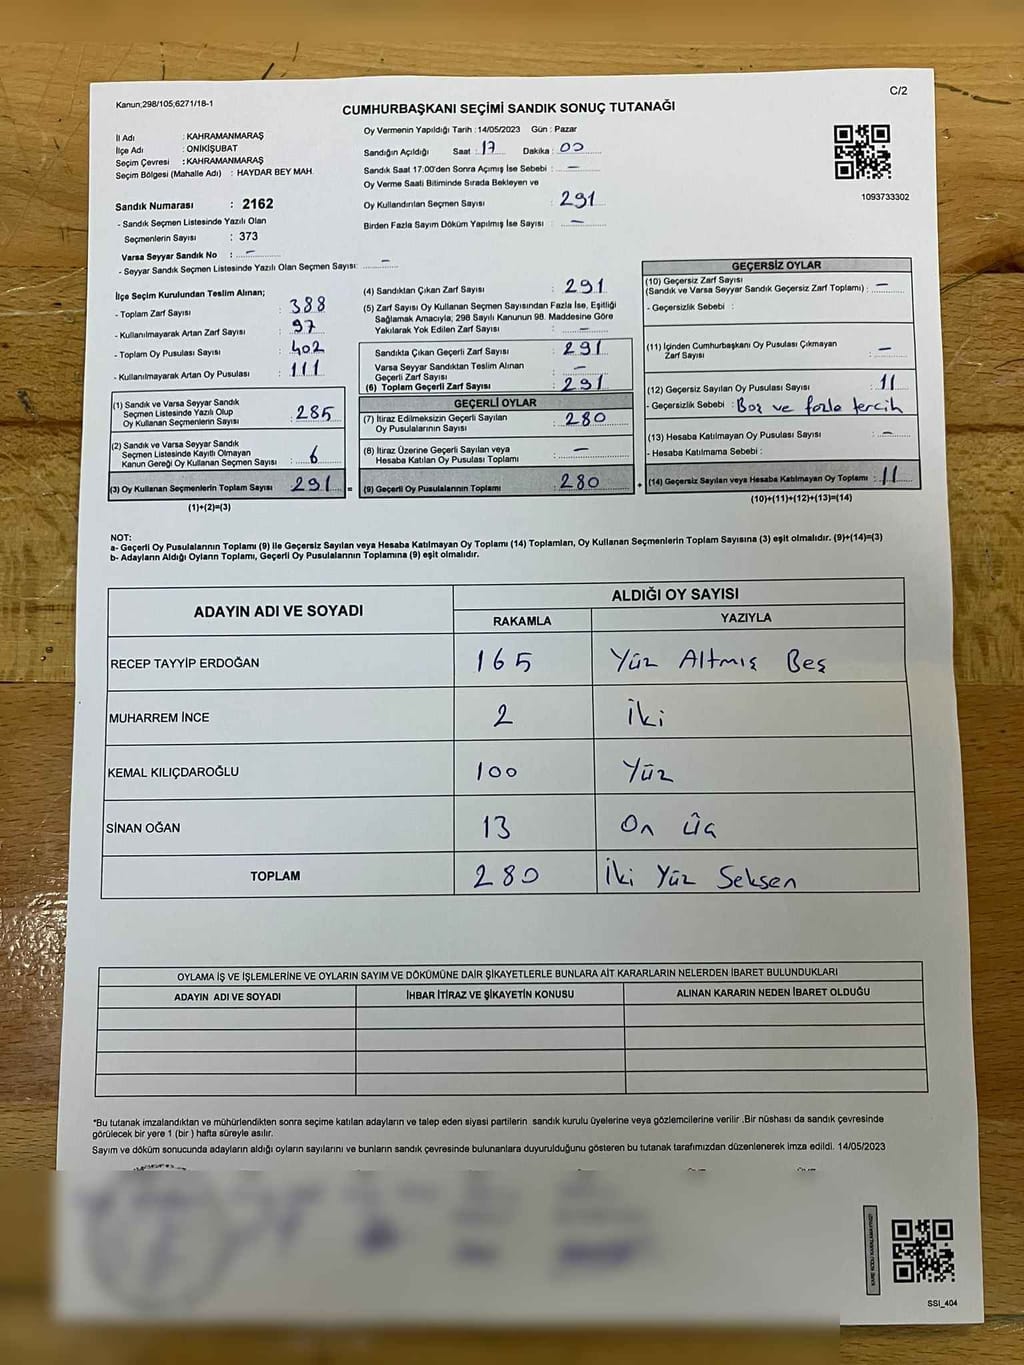 Kanun;298/105;6271/18-1
C/2
CUMHURBAŞKANI SEÇİMİ SANDIK SONUÇ TUTANAĞI
İl Adı : KAHRAMANMARAŞ
İlçe Adı : ONİKİŞUBAT
Seçim Çevresi : KAHRAMANMARAŞ
Seçim Bölgesi (Mahalle Adı) : HAYDAR BEY MAH.
Sandık Numarası : 2162
- Sandık Seçmen Listesinde Yazılı Olan
Seçmenlerin Sayısı : 373
Varsa Seyyar Sandık No : –
- Seyyar Sandık Seçmen Listesinde Yazılı Olan Seçmen Sayısı: –
Oy Vermenin Yapıldığı Tarih : 14/05/2023 Gün : Pazar
Sandığın Açıldığı Saat : 17 Dakika : 00
Sandık Saat 17:00'den Sonra Açımış İse Sebebi : –
Oy Verme Saati Bitiminde Sırada Bekleyen ve
Oy Kullandırılan Seçmen Sayısı : 291
Birden Fazla Sayım Döküm Yapılmış İse Sayısı : –
1093733302
İlçe Seçim Kurulundan Teslim Alınan;
- Toplam Zarf Sayısı : 388
- Kullanılmayarak Artan Zarf Sayısı : 97
- Toplam Oy Pusulası Sayısı : 402
- Kullanılmayarak Artan Oy Pusulası : 111
(1) Sandık ve Varsa Seyyar Sandık
Seçmen Listesinde Yazılı Olup
Oy Kullanan Seçmenlerin Sayısı : 285
(2) Sandık ve Varsa Seyyar Sandık
Seçmen Listesinde Kayıtlı Olmayan
Kanun Gereği Oy Kullanan Seçmen Sayısı : 6
(3) Oy Kullanan Seçmenlerin Toplam Sayısı : 291 =
(1)+(2)=(3)
(4) Sandıktan Çıkan Zarf Sayısı : 291
(5) Zarf Sayısı Oy Kullanan Seçmen Sayısından Fazla İse, Eşitliği
Sağlamak Amacıyla; 298 Sayılı Kanunun 98. Maddesine Göre
Yakılarak Yok Edilen Zarf Sayısı : –
Sandıkta Çıkan Geçerli Zarf Sayısı : 291
Varsa Seyyar Sandıktan Teslim Alınan
Geçerli Zarf Sayısı : –
(6) Toplam Geçerli Zarf Sayısı : 291
GEÇERLİ OYLAR
(7) İtiraz Edilmeksizin Geçerli Sayılan
Oy Pusulalarının Sayısı : 280
(8) İtiraz Üzerine Geçerli Sayılan veya
Hesaba Katılan Oy Pusulası Toplamı : –
(9) Geçerli Oy Pusulalarının Toplamı : 280 +
GEÇERSİZ OYLAR
(10) Geçersiz Zarf Sayısı
(Sandık ve Varsa Seyyar Sandık Geçersiz Zarf Toplamı) : –
- Geçersizlik Sebebi :
(11) İçinden Cumhurbaşkanı Oy Pusulası Çıkmayan
Zarf Sayısı : –
(12) Geçersiz Sayılan Oy Pusulası Sayısı : 11
- Geçersizlik Sebebi : Boş ve fazla tercih
(13) Hesaba Katılmayan Oy Pusulası Sayısı : –
- Hesaba Katılmama Sebebi :
(14) Geçersiz Sayılan veya Hesaba Katılmayan Oy Toplamı : 11
(10)+(11)+(12)+(13)=(14)
NOT:
a- Geçerli Oy Pusulalarının Toplamı (9) ile Geçersiz Sayılan veya Hesaba Katılmayan Oy Toplamı (14) Toplamları, Oy Kullanan Seçmenlerin Toplam Sayısına (3) eşit olmalıdır. (9)+(14)=(3)
b- Adayların Aldığı Oyların Toplamı, Geçerli Oy Pusulalarının Toplamına (9) eşit olmalıdır.
ADAYIN ADI VE SOYADI
ALDIĞI OY SAYISI
RAKAMLA YAZIYLA
RECEP TAYYİP ERDOĞAN 165 Yüz Altmış Beş
MUHARREM İNCE 2 İki
KEMAL KILIÇDAROĞLU 100 Yüz
SİNAN OĞAN 13 On üç
TOPLAM 280 İki Yüz Seksen
OYLAMA İŞ VE İŞLEMLERİNE VE OYLARIN SAYIM VE DÖKÜMÜNE DAİR ŞİKAYETLERLE BUNLARA AİT KARARLARIN NELERDEN İBARET BULUNDUKLARI
ADAYIN ADI VE SOYADI İHBAR İTİRAZ VE ŞİKAYETİN KONUSU ALINAN KARARIN NEDEN İBARET OLDUĞU
*Bu tutanak imzalandıktan ve mühürlendikten sonra seçime katılan adayların ve talep eden siyasi partilerin sandık kurulu üyelerine veya gözlemcilerine verilir .Bir nüshası da sandık çevresinde
görülecek bir yere 1 (bir ) hafta süreyle asılır.
Sayım ve döküm sonucunda adayların aldığı oyların sayılarını ve bunların sandık çevresinde bulunanlara duyurulduğunu gösteren bu tutanak tarafımızdan düzenlenerek imza edildi. 14/05/2023
SSI_404